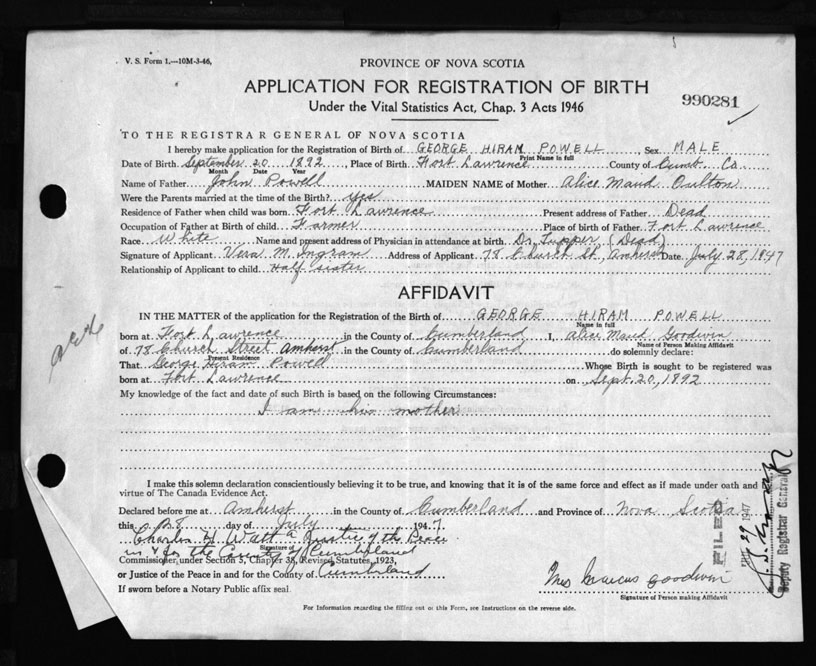 V. S. Form 1.—10M-3-46.
PROVINCE OF NOVA SCOTIA
APPLICATION FOR REGISTRATION OF BIRTH
Under the Vital Statistics Act, Chap. 3 Acts 1946
990281
TO THE REGISTRAR GENERAL OF NOVA SCOTIA
I hereby make application for the Registration of Birth of GEORGE HIRAM POWELL, Sex MALE
Print Name in full
Date of Birth September 20 1892, Place of Birth Fort Lawrence County of Cumb. Co.
Month Date Year
Name of Father John Powell MAIDEN NAME of Mother Alice Maud Oulton
Were the Parents married at the time of the Birth? yes
Residence of Father when child was born Fort Lawrence Present address of Father Dead
Occupation of Father at Birth of child Farmer Place of birth of Father Fort Lawrence
Race White Name and present address of Physician in attendance at birth Dr. Tupper (Dead)
Signature of Applicant Vera M. Ingram Address of Applicant 78 Church St. Amherst Date July 28, 1947
Relationship of Applicant to child Half sister
AFFIDAVIT
IN THE MATTER of the application for the Registration of the Birth of GEORGE HIRAM POWELL
Name in full
born at Fort Lawrence in the County of Cumberland I, Alice Maud Goodwin
Name of Person Making Affidavit
of 78 Church Street Amherst in the County of Cumberland do solemnly declare:
Present Residence
That George Hiram Powell Whose Birth is sought to be registered was
born at Fort Lawrence on Sept. 20, 1892
My knowledge of the fact and date of such Birth is based on the following Circumstances:
I am his mother
I make this solemn declaration conscientiously believing it to be true, and knowing that it is of the same force and effect as if made under oath and by
virtue of The Canada Evidence Act.
Declared before me at Amherst in the County of Cumberland and Province of Nova Scotia
this 28 day of July 1947.
Charles H Watt a Justice of the Peace
Signature of
in & for the County of Cumberland
Commissioner under Section 3, Chapter 38, Revised Statutes, 1923,
or Justice of the Peace in and for the County of Cumberland
If sworn before a Notary Public affix seal.
Mrs Marcus Goodwin
Signature of Person making Affidavit
For Information regarding the filling out of this Form, see Instructions on the reverse side.
FILED
29 1947
Deputy Registrar General